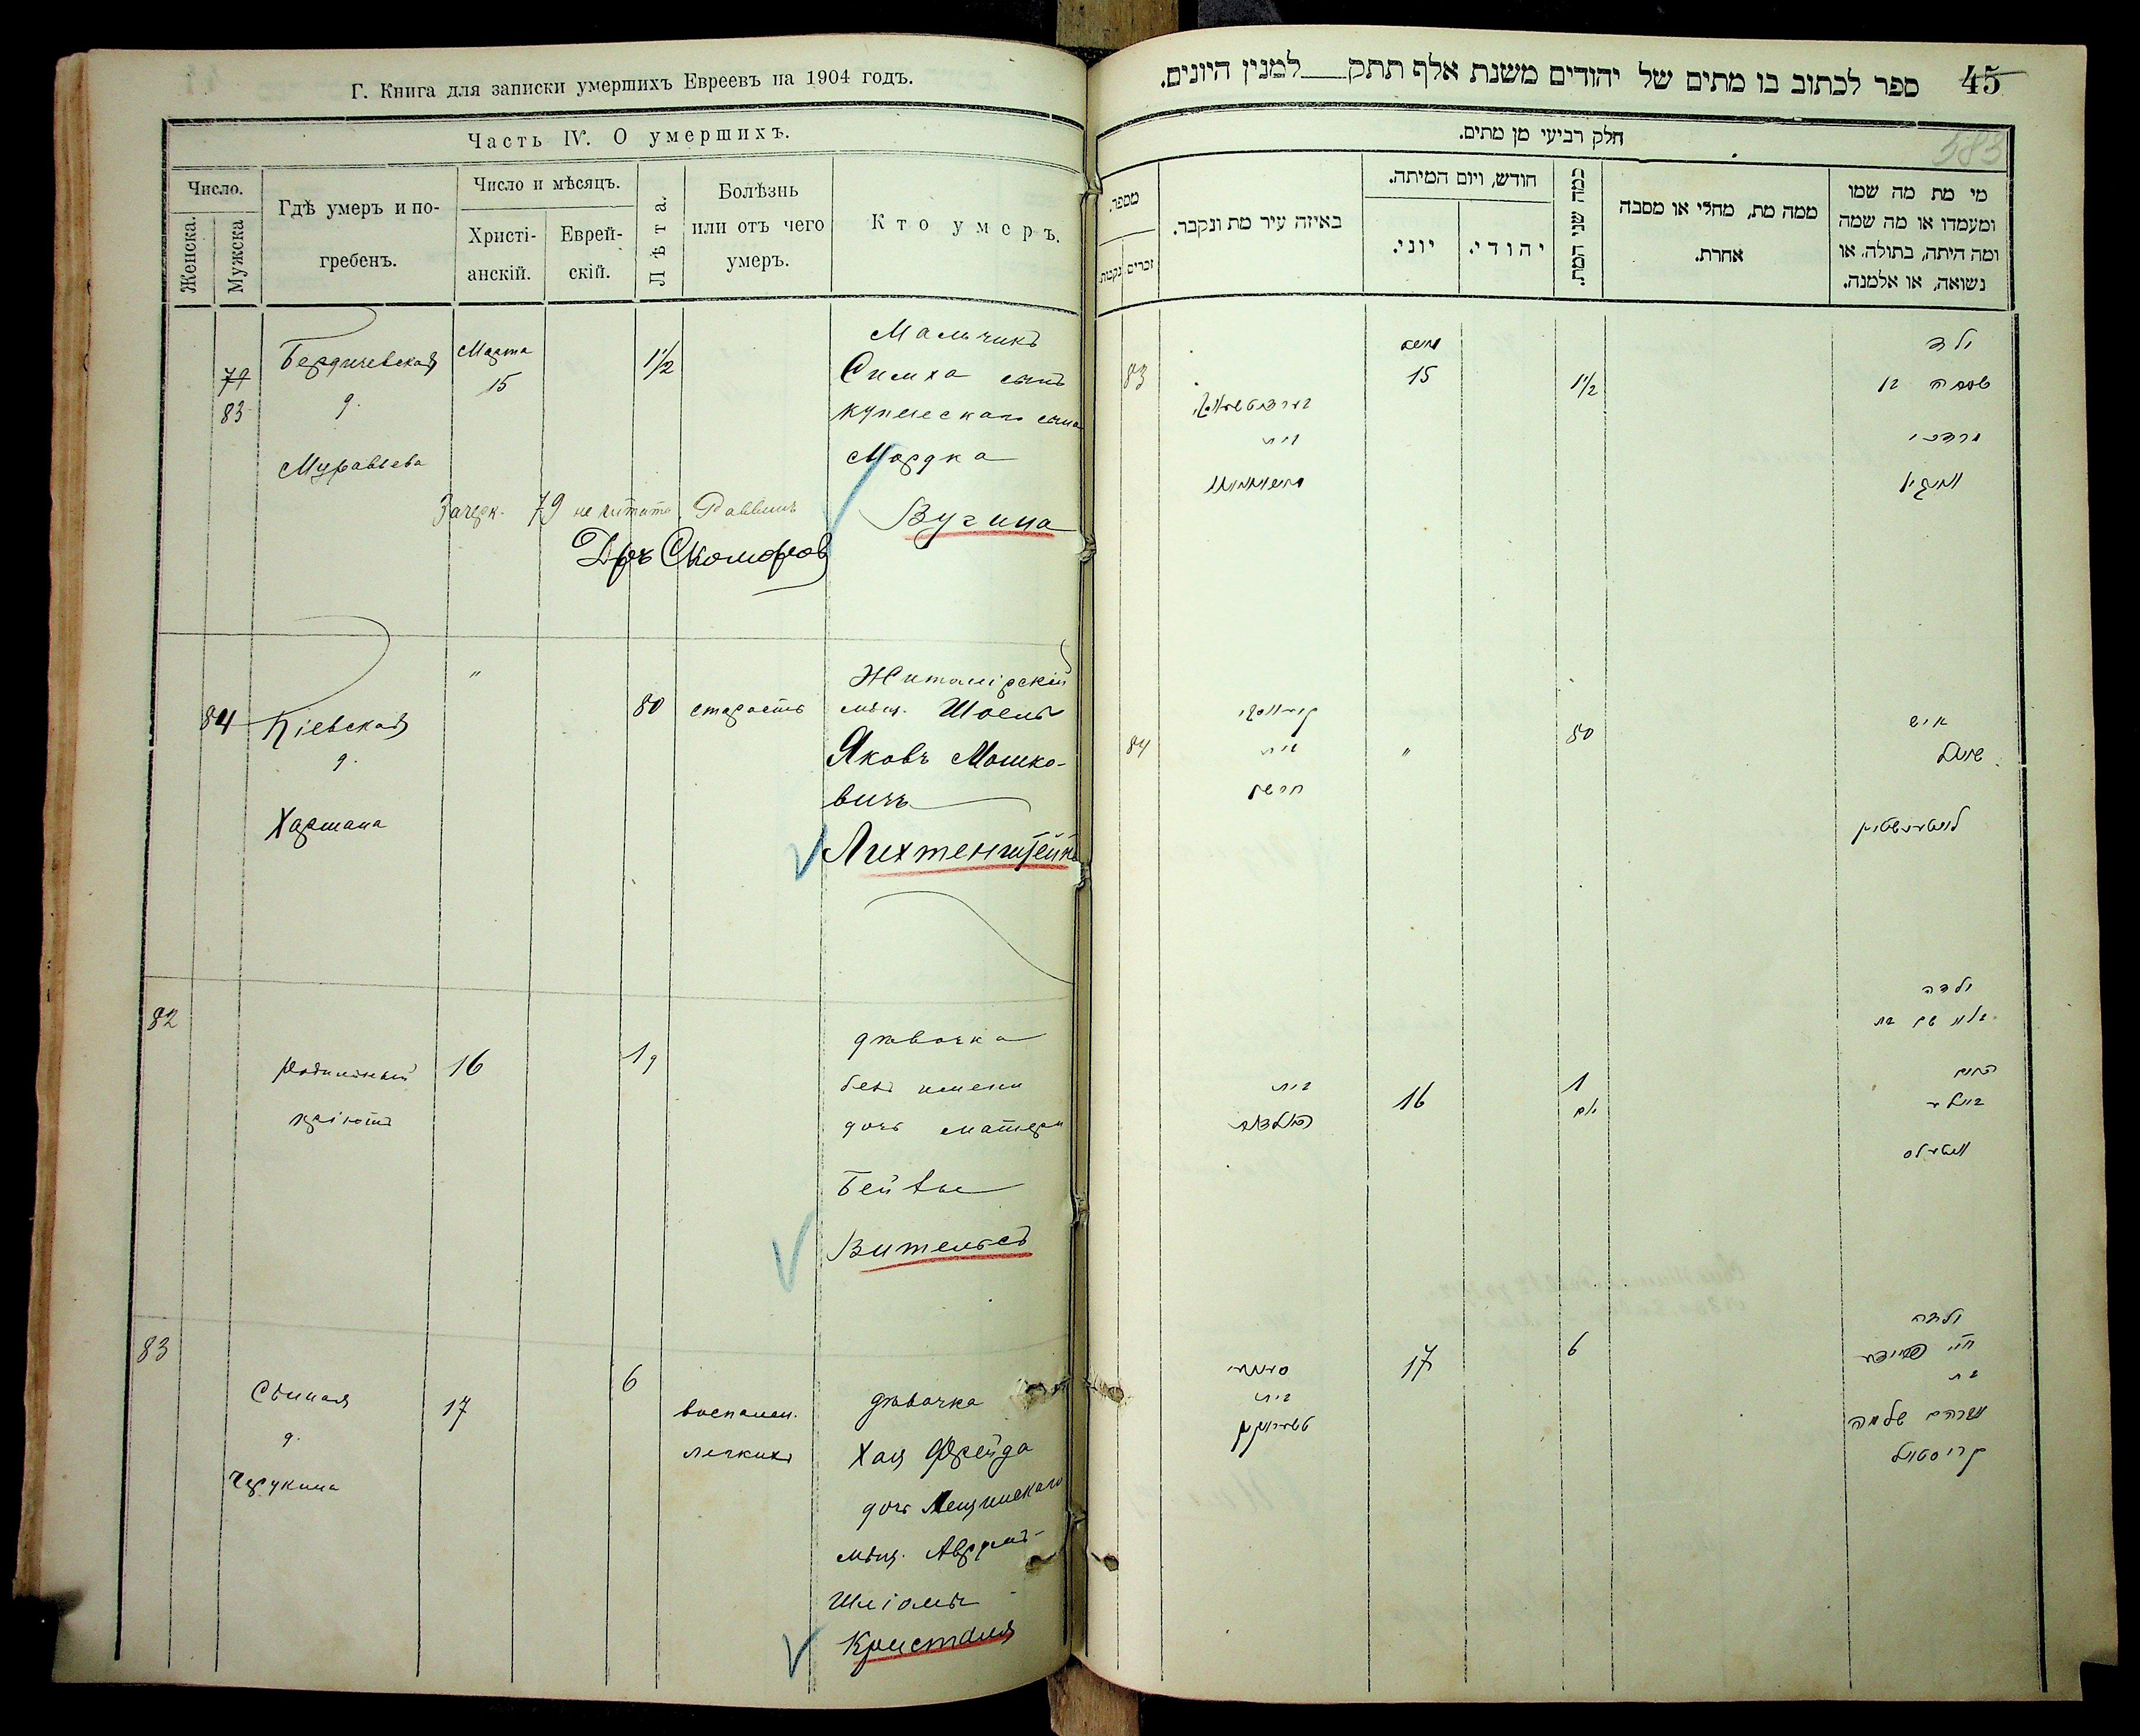 Г. Книга для записки умершихъ Евреевъ на 1904 годъ.
Часть IV. О умершихъ.
Число.
Женска.
Мужска
Гдѣ умеръ и по-
гребенъ.
Число и мѣсяцъ.
Христі-
анскій.
Еврей-
скій.
Лѣта.
Болѣзнь
или отъ чего
умеръ.
Кто умеръ.
79
83
Бердичевская
д.
Муравьева
Марта
15
1 1/2
Мальчикъ
Симха сынъ
купеческаго сына
Мордка
Вугина
Зачерк. 79 не читать. Раввинъ
Д-ръ Скоморовс
84
Кіевская
д.
Хармана
"
80
старость
Житомірскій
мѣщ. Шоель
Яковъ Мошко-
вичъ
Лихтенштейнъ
82
Родильный
пріютъ
16
1 д
дѣвочка
безъ имени
дочь матери
Бейлы
Вительсъ
83
Сѣнная
д.
Черукина
17
6
воспален.
легкихъ
дѣвочка
Хая Фрейда
дочь Лещинскаго
мѣщ. Аврумъ
Шліомы
Кристаля
ספר לכתוב בו מתים של יהודים משנת אלף תתק___למנין היונים.
45
583
חלק רביעי מן מתים.
מספר.
זכרים
נקבות
באיזה עיר מת ונקבר.
חודש, ויום המיתה.
יוני.
יהודי.
כמה שני המת.
ממה מת, מחלי או מסבה
אחרת.
מי מת מה שמו
ומעמדו או מה שמה
ומה היתה, בתולה, או
נשואה, או אלמנה.
83
בית
15
1 1/2
ילד
שמחה בן
מרדכי
וואגין
84
בית
חרמן
"
80
איש
שואל
ליכטענשטיין
בית
16
1
יום
ילדה
בלא שם בת
האם
ביילע
וויטעלס
בית
17
6
ילדה
חי' פריידע
בת
אברהם שלמה
קריסטאל